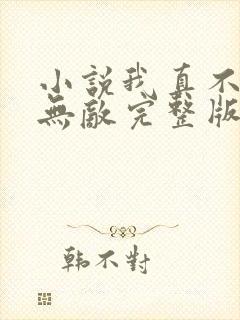 小說我真不
無敵完整版
韩不對